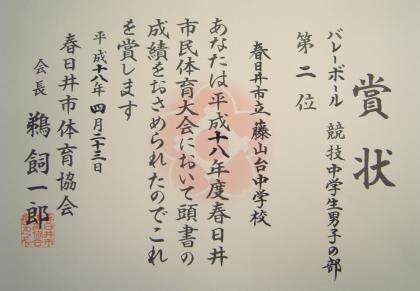 賞状
バレーボール 競技中学生男子の部
第二位
春日井市立 藤山台中学校
あなたは平成十八年度春日井
市民体育大会において頭書の
成績をおさめられたのでこれ
を賞します
平成十八年四月二十三日
春日井市体育協会
会長 鵜飼一郎